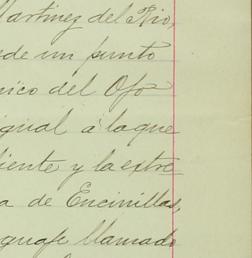 Martinez del Rio,
de un punto
nico del Ojo
igual á la que
iente y la extre
a de Encinillas,
guaje llamado